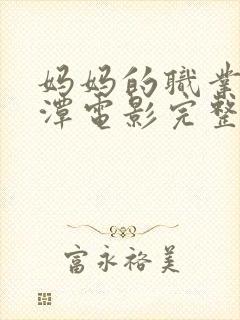 妈妈的職業
潭电影完整
富永裕美